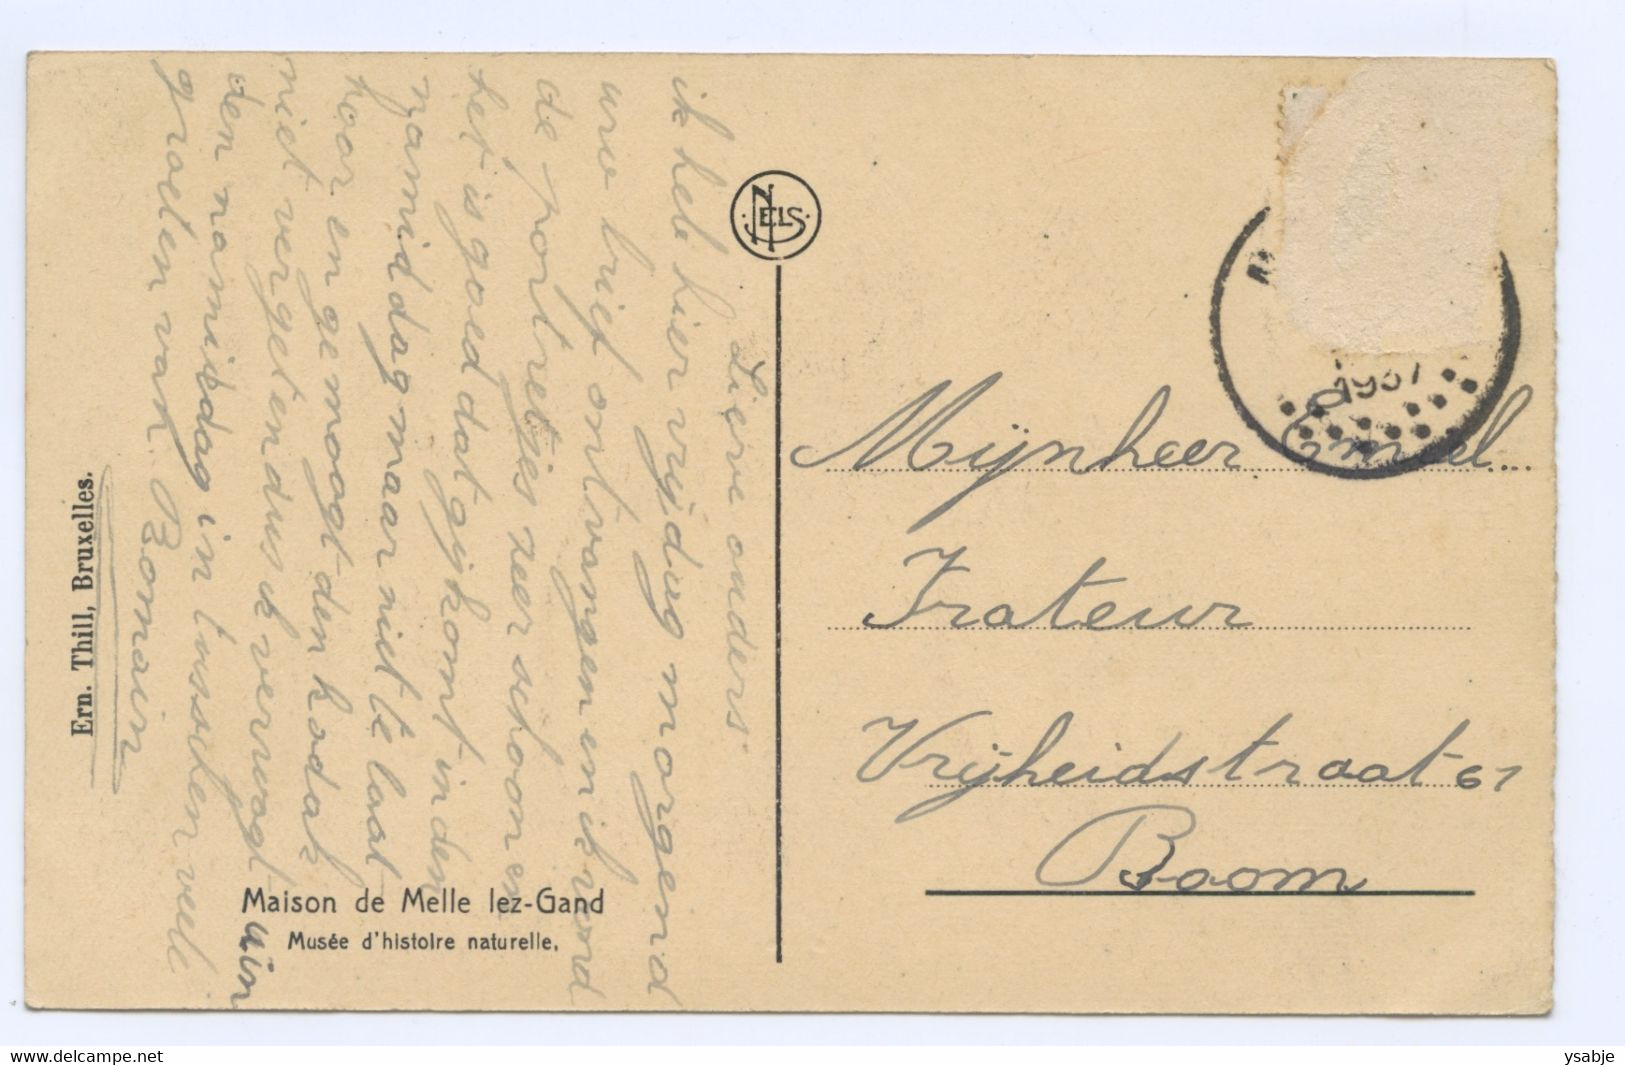 Lieve ouders
ik heb hier vrijdag morgend
uw brief ontvangen en ik vond
de portretjes zeer schoon en
het is goed dat gij komt in den
namiddag maar niet te laat
hoor en ge moogt den kodak
niet vergeten dus ik verwagt
den namiddag in tusschen veele
groeten van Romain
Ern. Thill, Bruxelles.
Maison de Melle lez-Gand
Musée d'histoire naturelle.
NELS
1937
Mijnheer Emiel
Frateur
Vrijheidstraat 61
Boom
ysabje